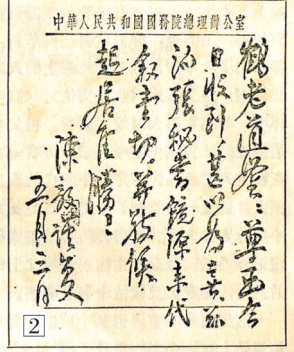 中華人民共和國國務院總理辦公室
鶴老道鑒：尊函今
日收到，甚以为喜，兹
派張秘書鏡源来代
叙壹切，并敬候
起居佳勝！
陳毅謹复
五月三日
2